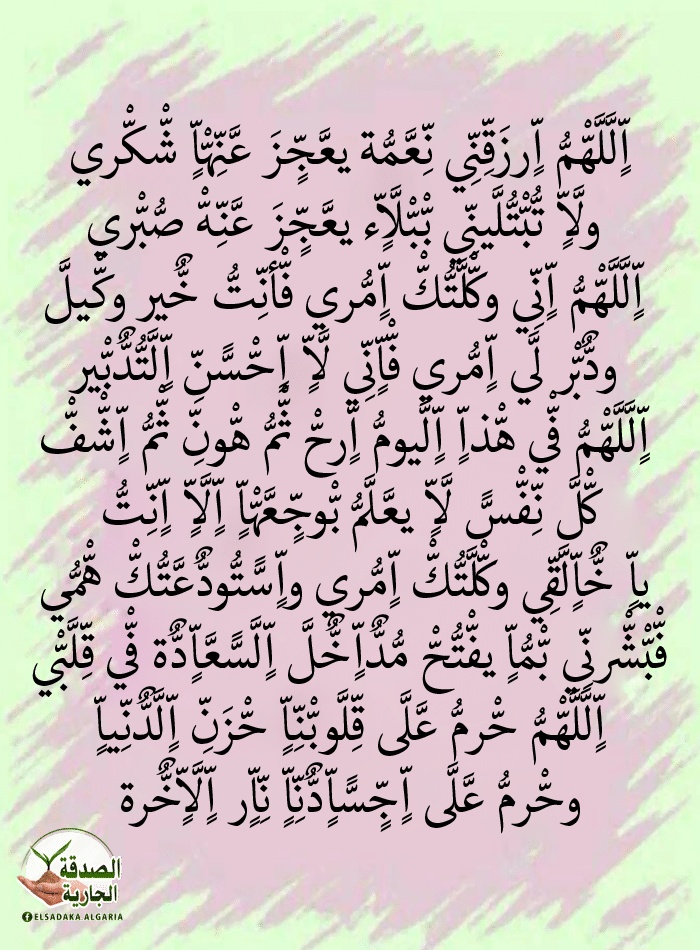 اٍّلَّلَّهّْمُّ اٍّرزَقِّنِّي نِّعَّمُّة يعَّجٍّزَ عَّنِّهّْاٍّ شّْكّْري
ولَّاٍّ تُّبّْتُّلَّينِّي بّْبّْلَّاٍّء يعَّجٍّزَ عَّنِّهّْ صُّبّْري
اٍّلَّلَّهّْمُّ اٍّنِّي وكّْلَّتُّكّْ اٍّمُّري فّْأنِّتُّ خٌّير وكّْيلَّ
ودٌّبّْر لَّي اٍّمُّري فّْاٍّنِّي لَّاٍّ اٍّحّْسًّنِّ اٍّلَّتُّدٌّبّْير
اٍّلَّلَّهّْمُّ فّْي هّْذاٍّ اٍّلَّيومُّ اٍّرحّْ ثًّمُّ هّْونِّ ثًّمُّ اٍّشّْفّْ
كّْلَّ نِّفّْسًّ لَّاٍّ يعَّلَّمُّ بّْوجٍّعَّهّْاٍّ اٍّلَّاٍّ اٍّنِّتُّ
ياٍّ خٌّاٍّلَّقِّي وكّْلَّتُّكّْ اٍّمُّري واٍّسًّتُّودٌّعَّتُّكّْ هّْمُّي
فّْبّْشّْرنِّي بّْمُّاٍّ يفّْتُّحّْ مُّدٌّاٍّخٌّلَّ اٍّلَّسًّعَّاٍّدٌّة فّْي قِّلَّبّْي
اٍّلَّلَّهّْمُّ حّْرمُّ عَّلَّى قِّلَّوبّْنِّاٍّ حّْزَنِّ اٍّلَّدٌّنِّياٍّ
وحّْرمُّ عَّلَّى اٍّجٍّسًّاٍّدٌّنِّاٍّ نِّاٍّر اٍّلَّاٍّخٌّرة
الصدقة
الجارية
ELSADAKA ALGARIA